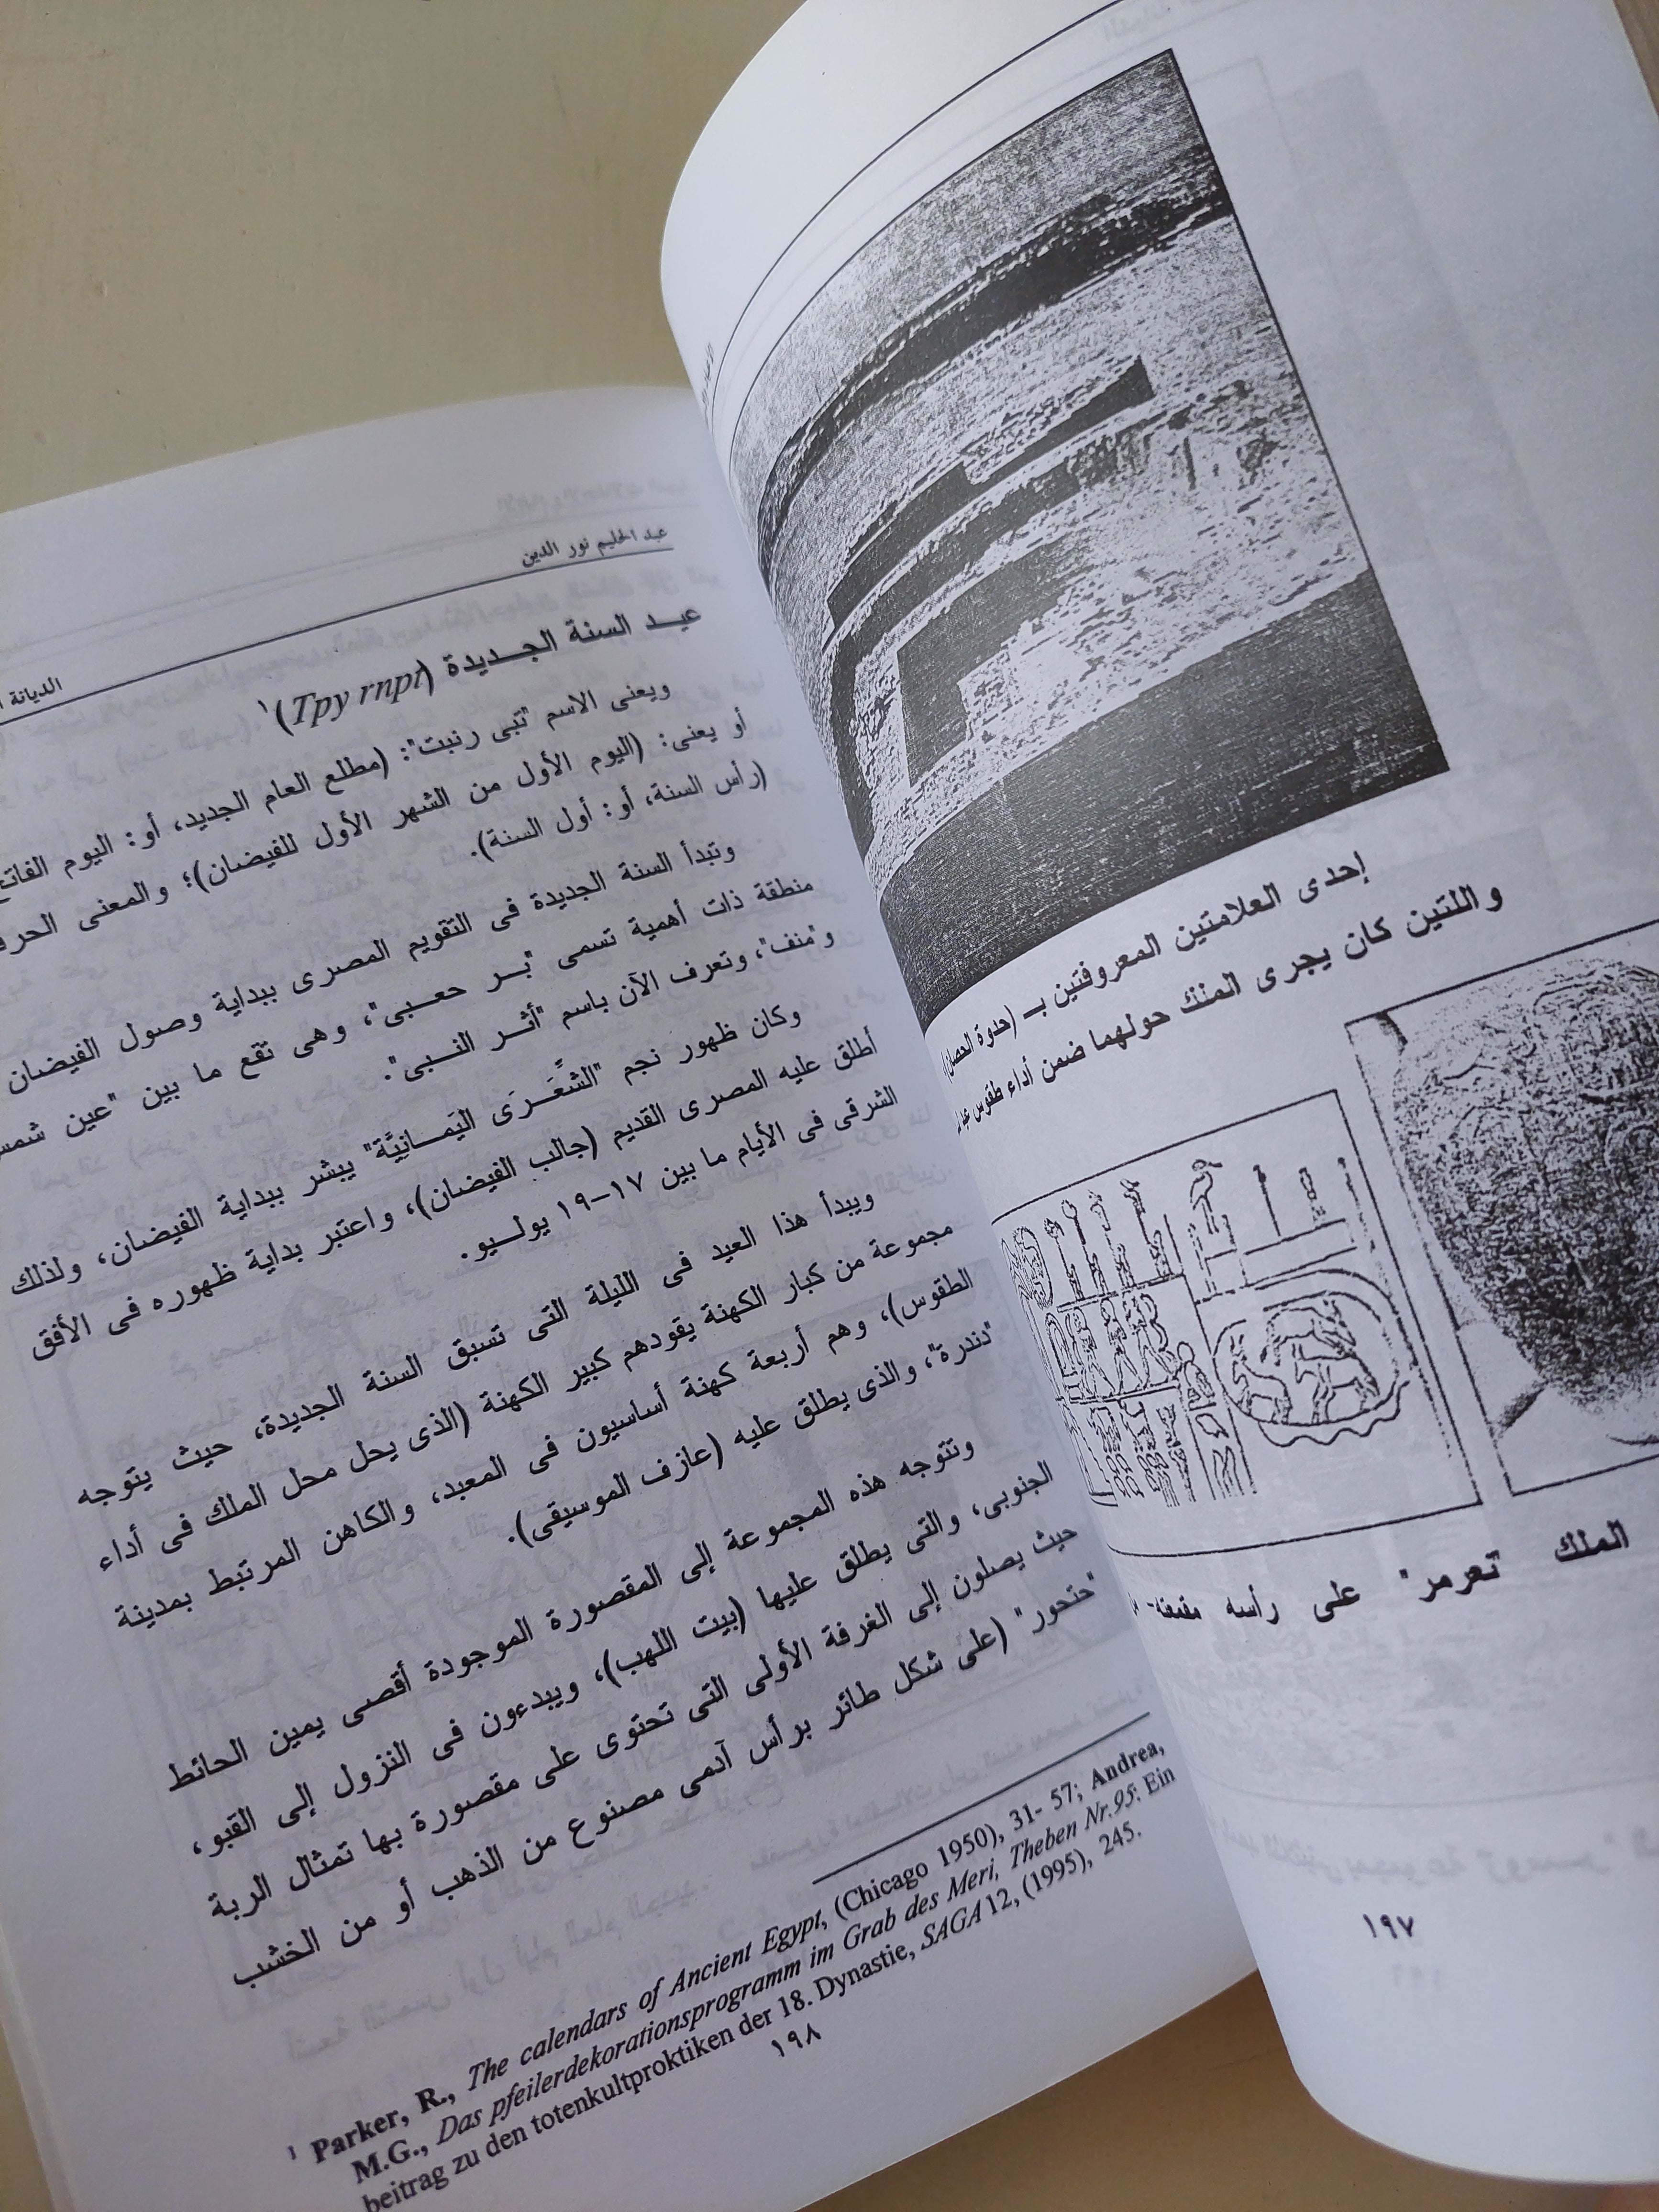 إحدى العلامتين المعروفتين بـ (حدوة الحصان)
واللتين كان يجرى الملك حولهما ضمن أداء طقوس
الملك "نعرمر" على رأسه
١٩٧
عبد الحليم نور الدين
الديانة
عيد السنة الجديدة (Tpy rnpt)١
ويعنى الاسم "تبى رنبت": (مطلع العام الجديد، أو: اليوم
أو يعنى: (اليوم الأول من الشهر الأول للفيضان)؛ والمعنى
(رأس السنة، أو: أول السنة).
وتبدأ السنة الجديدة فى التقويم المصرى ببداية وصول الفيضان
منطقة ذات أهمية تسمى "بـر حعـبى"، وهى تقع ما بين "عين
و"منف"، وتعرف الآن باسم "أثـر النـبى".
وكان ظهور نجم "الشِّعْـرَى اليَمـانِيَّة" يبشر ببداية الفيضان، ولذلك
أطلق عليه المصرى القديم (جالب الفيضان)، واعتبر بداية ظهوره فى الأفق
الشرقى فى الأيام ما بين ١٧–١٩ يوليـو.
ويبدأ هذا العيد فى الليلة التى تسبق السنة الجديدة، حيث يتوجه
مجموعة من كبار الكهنة يقودهم كبير الكهنة (الذى يحل محل الملك فى أداء
الطقوس)، وهم أربعة كهنة أساسيون فى المعبد، والكاهن المرتبط بمدينة
"دندرة"، والذى يطلق عليه (عازف الموسيقى).
وتتوجه هذه المجموعة إلى المقصورة الموجودة أقصى يمين الحائط
الجنوبى، والتى يطلق عليها (بيت اللهب)، ويبدءون فى النزول إلى القبو،
حيث يصلون إلى الغرفة الأولى التى تحتوى على مقصورة بها تمثال الربة
"حتحور" (على شكل طائر برأس آدمى مصنوع من الذهب أو من الخشب
١ Parker, R., The calendars of Ancient Egypt, (Chicago 1950), 31- 57; Andrea,
M.G., Das pfeilerdekorationsprogramm im Grab des Meri, Theben Nr.95: Ein
beitrag zu den totenkultproktiken der 18. Dynastie, SAGA 12, (1995), 245.
١٩٨